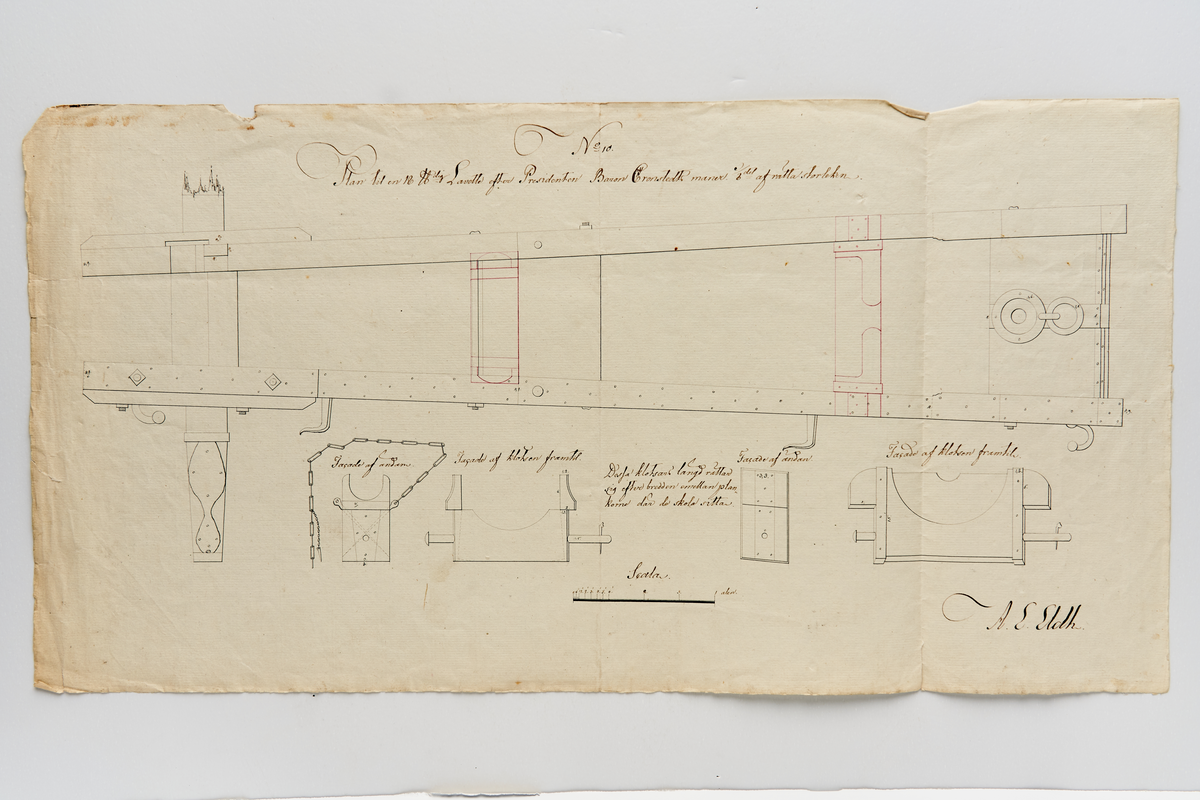 No 10.
Plan til en 18 Lavette efter Presidenten Baron Cronstedts maner af rätta storleken.
Façade af ändan.
Façade af klotsen framtil.
Dessa klotsars längd rättar
sig efter bredden emellan plan
korne där de skola sitta.
Façade af ändan
Façade af klotsen framtil.
Scala.
alen.
A. E.